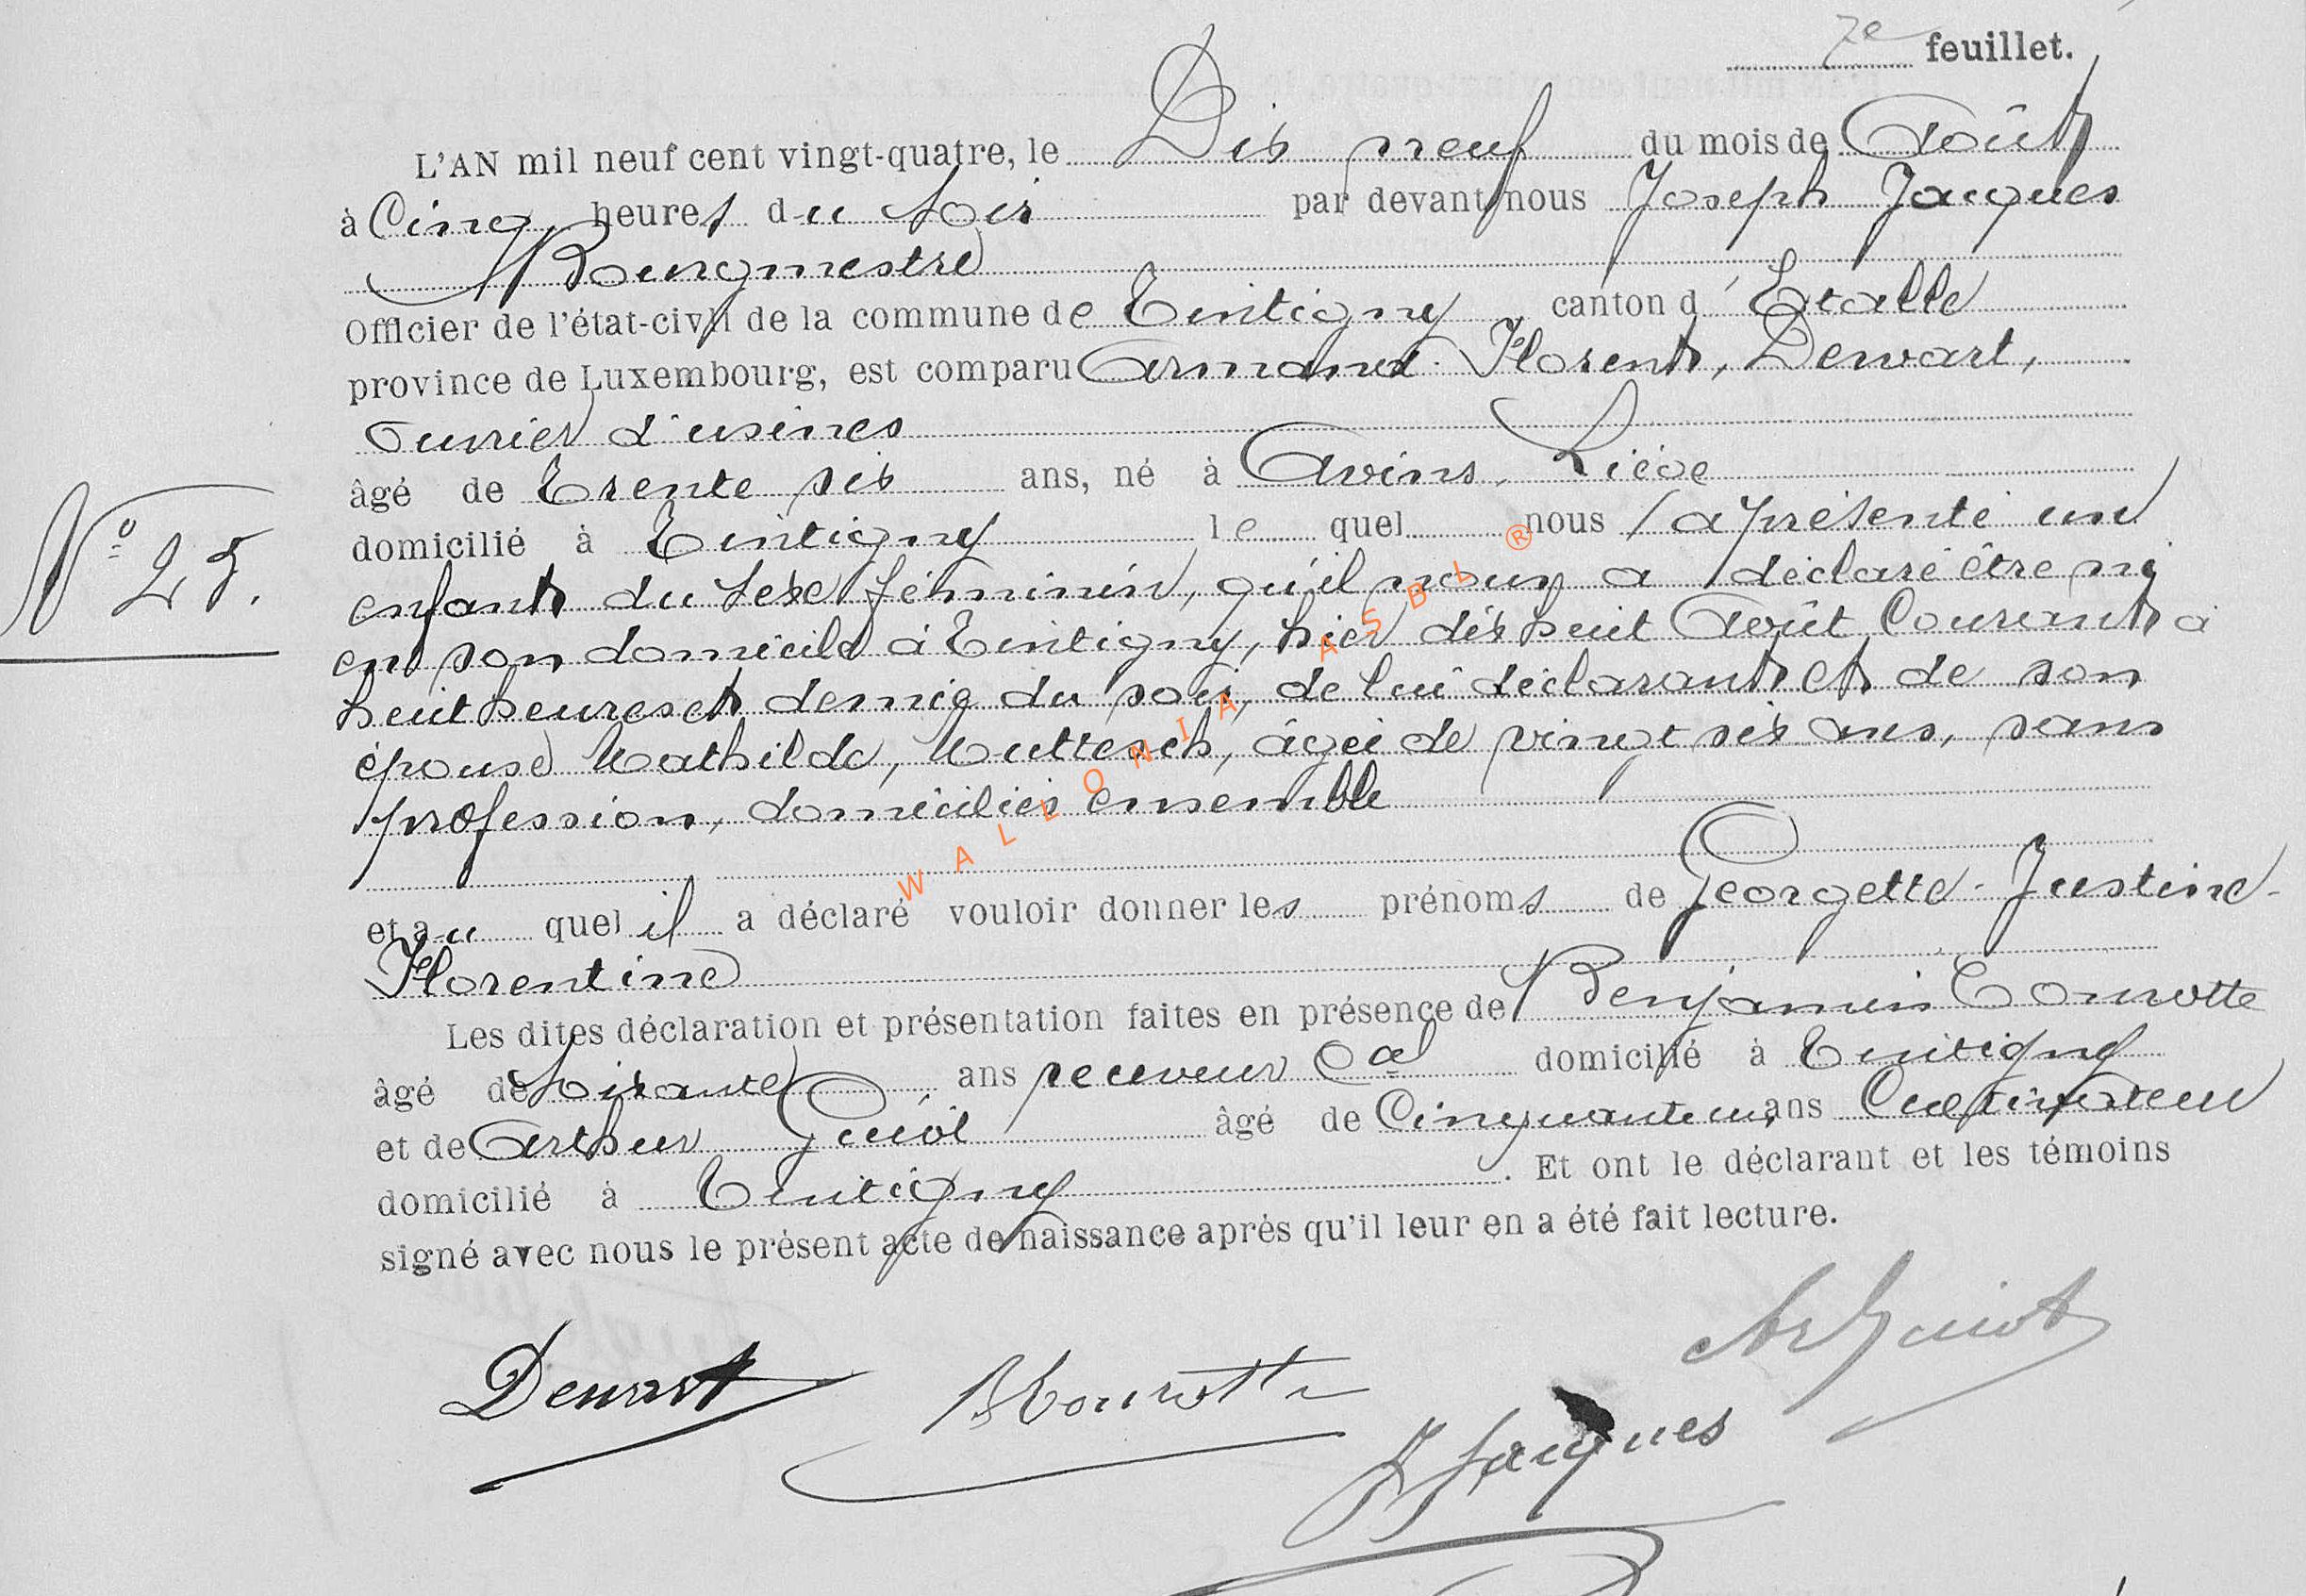 7e feuillet.
L'AN mil neuf cent vingt-quatre, le Dix neuf du mois de Août
à Cinq heures du soir par devant nous Joseph Jacques
Bourgmestre
Officier de l'état-civil de la commune de Tintigny canton d'Etalle
province de Luxembourg, est comparu Armand Florent, Dewart,
Ouvrier d'usines
âgé de Trente six ans, né à Avins, Liége
domicilié à Tintigny le quel nous a présenté un
N° 25.
enfant du sexe féminin, qu'il nous a déclaré être né
en son domicile à Tintigny, hier dix huit Août Courant à
huit heures et demie du soir, de lui déclarant et de son
épouse Mathilde, Muttesch, âgée de vingt six ans, sans
profession, domiciliés ensemble
et au quel il a déclaré vouloir donner les prénoms de Georgette-Justine-
Florentine
Les dites déclaration et présentation faites en présence de Benjamin
âgé de soixante ans receveur Cal domicilié à Tintigny
et de Arthur Guiot âgé de Cinquante un ans Cultivateur
domicilié à Tintigny. Et ont le déclarant et les témoins
signé avec nous le présent acte de naissance après qu'il leur en a été fait lecture.
Ar Guiot
Dewart
J Jacques
WALLONIA ASBL ®